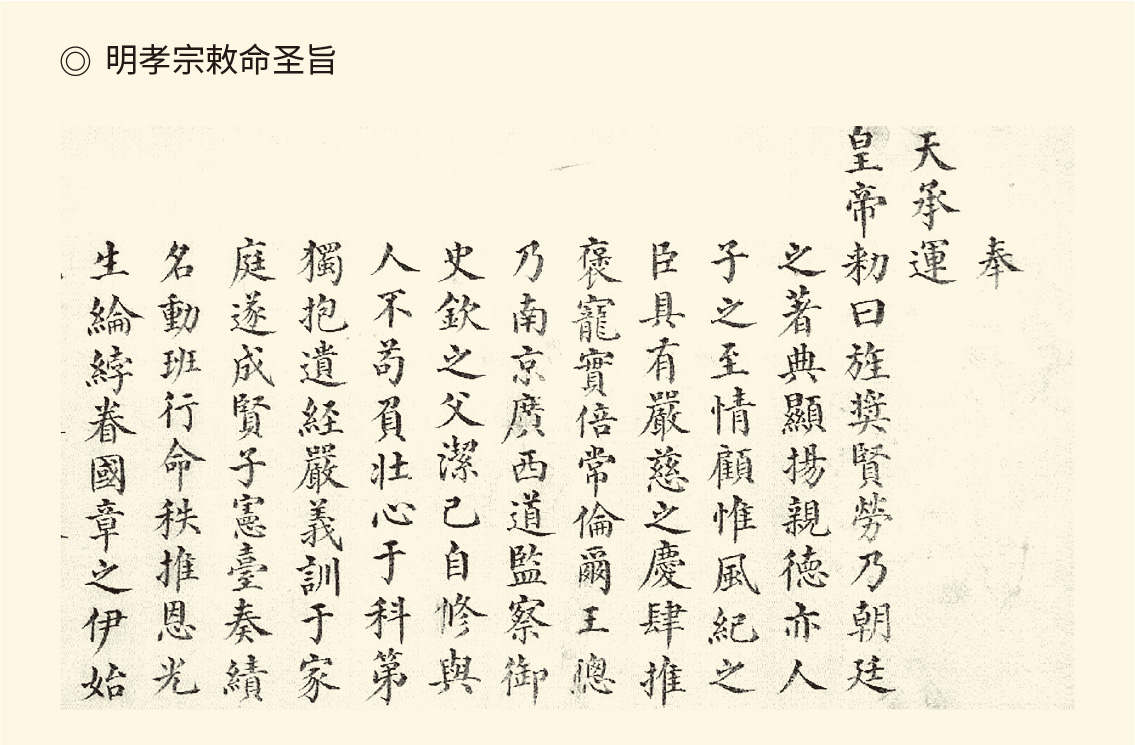 ◎ 明孝宗敕命圣旨
奉
天承運
皇帝勑曰旌奬賢勞乃朝廷
之著典顯揚親德亦人
子之至情顧惟風紀之
臣具有嚴慈之慶肆推
褒寵實倍常倫爾王聰
乃南京廣西道監察御
史欽之父潔己自修與
人不苟負壯心于科第
獨抱遺経嚴義訓于家
庭遂成賢子憲臺奏績
名動班行命秩推恩光
生綸綍眷國章之伊始